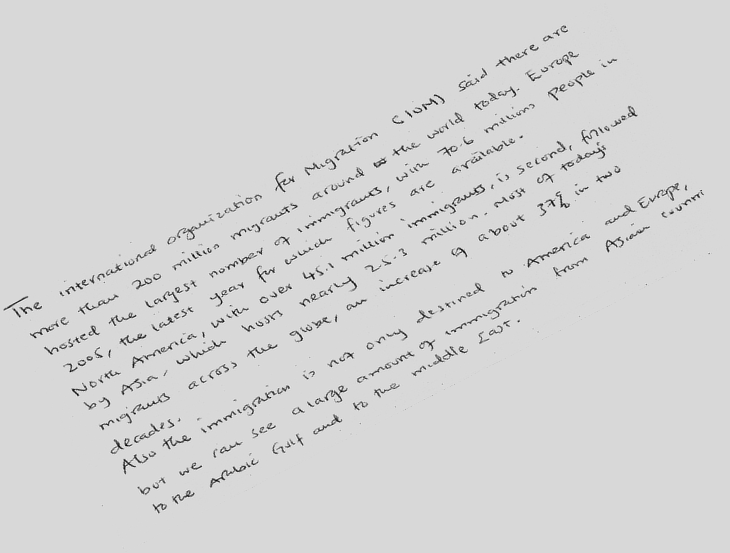 The international organization for Migration (IOM) said there are
more than 200 million migrants around the world today. Europe
hosted the largest number of immigrants, with 70.6 million people in
2005, the latest year for which figures are available.
North America, with over 45.1 million immigrants, is second, followed
by Asia, which hosts nearly 25.3 million. Most of today's
migrants across the globe, an increase of about 37% in two
decades.
Also the immigration is not only destined to America and Europe,
but we can see a large amount of immigration from Asian countri
to the Arabic Gulf and to the middle East.